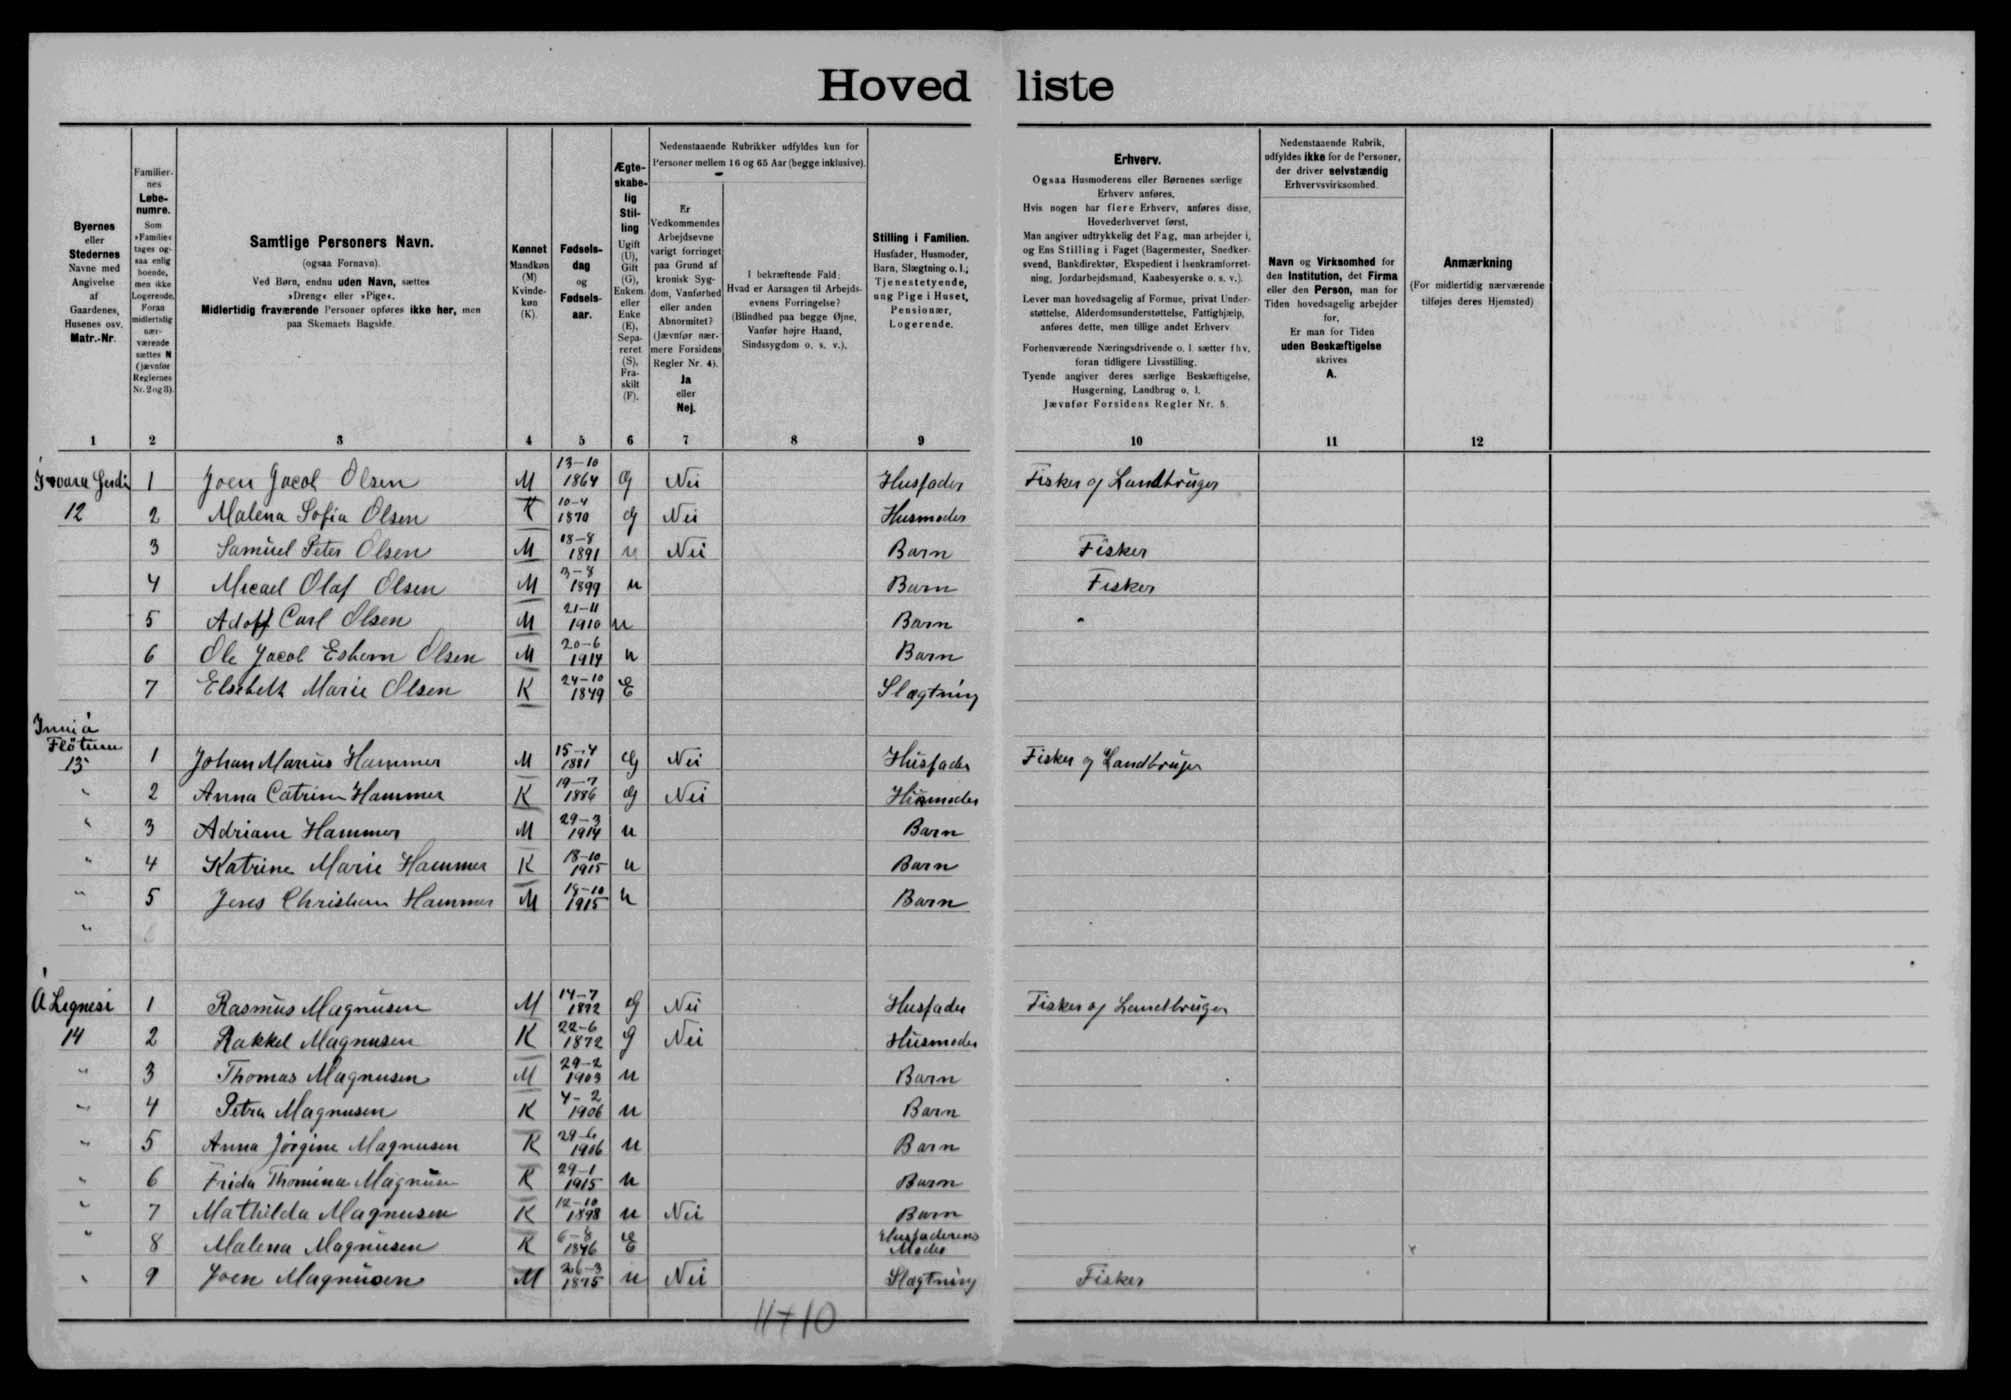 Hovedliste
Byernes
eller
Stedernes
Navne med
Angivelse
af
Gaardenes,
Husenes osv.
Matr.-Nr.
Familier-
nes
Løbe-
numre.
Som
»Familie«
tages og-
saa enlig
boende,
men ikke
Logerende.
Foran
midlertidig
nær-
værende
sættes N
(jævnfør
Reglernes
Nr. 2 og 3).
Samtlige Personers Navn.
(ogsaa Fornavn).
Ved Børn, endnu uden Navn, sættes
»Dreng« eller »Pige«.
Midlertidig fraværende Personer opføres ikke her, men
paa Skemaets Bagside.
Kønnet
Mandkøn
(M)
Kvinde-
køn
(K).
Fødsels-
dag
og
Fødsels-
aar.
Ægte-
skabe-
lig
Stil-
ling
Ugift
(U),
Gift
(G),
Enkem.
eller
Enke
(E),
Sepa-
reret
(S),
Fra-
skilt
(F).
Nedenstaaende Rubrikker udfyldes kun for
Personer mellem 16 og 65 Aar (begge inklusive).
Er
Vedkommendes
Arbejdsevne
varigt forringet
paa Grund af
kronisk Syg-
dom, Vanførhed
eller anden
Abnormitet?
(Jævnfør nær-
mere Forsidens
Regler Nr. 4).
Ja
eller
Nej.
I bekræftende Fald:
Hvad er Aarsagen til Arbejds-
evnens Forringelse?
(Blindhed paa begge Øjne,
Vanfør højre Haand,
Sindssygdom o. s. v.).
Stilling i Familien.
Husfader, Husmoder,
Barn, Slægtning o. l.;
Tjenestetyende,
ung Pige i Huset,
Pensionær,
Logerende.
Erhverv.
Ogsaa Husmoderens eller Børnenes særlige
Erhverv anføres.
Hvis nogen har flere Erhverv, anføres disse,
Hovederhvervet først.
Man angiver udtrykkelig det Fag, man arbejder i,
og Ens Stilling i Faget (Bagermester, Snedker-
svend, Bankdirektør, Ekspedient i Isenkramforret-
ning, Jordarbejdsmand, Kaabesyerske o. s. v.).
Lever man hovedsagelig af Formue, privat Under-
støttelse, Alderdomsunderstøttelse, Fattighjælp,
anføres dette, men tillige andet Erhverv.
Forhenværende Næringsdrivende o. l. sætter fhv.
foran tidligere Livsstilling.
Tyende angiver deres særlige Beskæftigelse,
Husgerning, Landbrug o. l.
Jævnfør Forsidens Regler Nr. 5.
Nedenstaaende Rubrik,
udfyldes ikke for de Personer,
der driver selvstændig
Erhvervsvirksomhed.
Navn og Virksomhed for
den Institution, det Firma
eller den Person, man for
Tiden hovedsagelig arbejder
for.
Er man for Tiden
uden Beskæftigelse
skrives
A.
Anmærkning
(For midlertidig nærværende
tilføjes deres Hjemsted)
1 2 3 4 5 6 7 8 9 10 11 12
1 Joen Jacob Olsen M 13-10 1864 G Nei Husfader Fisker og Landbruger
12 2 Malena Sofia Olsen K 10-4 1870 G Nei Husmoder
3 Samuel Peter Olsen M 18-8 1891 u Nei Barn Fisker
4 Micael Olaf Olsen M 3-8 1899 u Barn Fisker
5 Adolf Carl Olsen M 21-11 1910 u Barn "
6 Ole Jacob Esbern Olsen M 20-6 1914 u Barn
7 Elsebeth Marie Olsen K 24-10 1849 E Slægtning
Inni á
Fløtunn
13 1 Johan Marius Hammer M 15-4 1881 G Nei Husfader Fisker og Landbruger
" 2 Anna Catrine Hammer K 19-7 1886 G Nei Husmoder
" 3 Adriane Hammer M 29-3 1914 u Barn
" 4 Katrine Marie Hammer K 18-10 1915 u Barn
" 5 Jens Christian Hammer M 18-10 1915 u Barn
"
Á Legnesi 1 Rasmus Magnusen M 14-7 1872 G Nei Husfader Fisker og Landbruger
14 2 Rakkel Magnusen K 22-6 1872 G Nei Husmoder
" 3 Thomas Magnusen M 29-2 1903 u Barn
" 4 Petra Magnusen K 4-2 1906 u Barn
" 5 Anna Jörgine Magnusen K 29-6 1906 u Barn
" 6 Frida Thomina Magnusen K 29-1 1915 u Barn
" 7 Mathilda Magnusen K 12-10 1898 u Nei Barn
" 8 Malena Magnusen K 6-8 1846 E Husfaderens Moder
" 9 Joen Magnusen M 26-3 1875 u Nei Slægtning Fisker
11+10